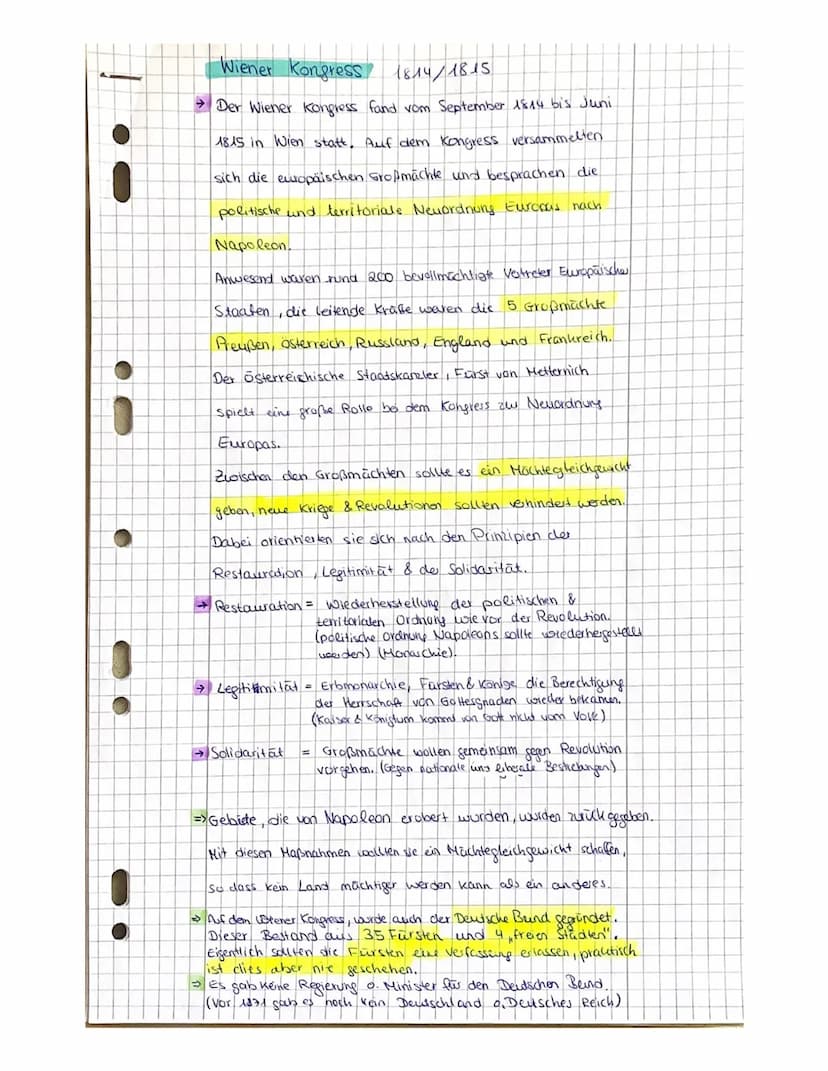 Wiener Kongress 1814/1815
→ Der Wiener Kongress fand vom September 1814 bis Juni
1815 in Wien statt. Auf dem Kongress versammelten
sich die europäischen Großmächte und besprachen die
politische und territoriale Neuordnung Europas nach
Napoleon.
Anwesend waren rund 200 bevollmächtigte Vertreter Europäischer
Staaten, die leitende Kräfte waren die 5 Großmächte
Preußen, Österreich, Russland, England und Frankreich.
Der Österreichische Staatskanzler, Fürst von Metternich
spielt eine große Rolle bei dem Kongress zur Neuordnung
Europas.
Zwischen den Großmächten sollte es ein Mächtegleichgewicht
geben, neue Kriege & Revolutionen sollten verhindert werden.
Dabei orientierten sie sich nach den Prinzipien der
Restauration, Legitimität & der Solidarität.
→ Restauration = Wiederherstellung der politischen &
territorialen Ordnung wie vor der Revolution.
(politische Ordnung Napoleons sollte wiederhergestellt
werden) (Monarchie).
→ Legitimität = Erbmonarchie, Fürsten & Könige die Berechtigung
der Herrschaft von Gottesgnaden wieder bekamen.
(Kaiser & Königtum kommt von Gott nicht vom Volk)
→ Solidarität = Großmächte wollen gemeinsam gegen Revolution
vorgehen. (Gegen nationale und liberale Bestrebungen)
⇒ Gebiete, die von Napoleon erobert wurden, wurden zurück gegeben.
Mit diesen Maßnahmen wollten sie ein Mächtegleichgewicht schaffen,
so dass kein Land mächtiger werden kann als ein anderes.
⇒ Auf dem Wiener Kongress, wurde auch der Deutsche Bund gegründet.
Dieser Bestand aus 35 Fürsten und 4 „freien Städten".
Eigentlich sollten die Fürsten eine Verfassung erlassen, praktisch
ist dies aber nie geschehen.
⇒ Es gab keine Regierung o. Minister für den Deutschen Bund.
(Vor 1871 gab es noch kein Deutschland o. Deutsches Reich)